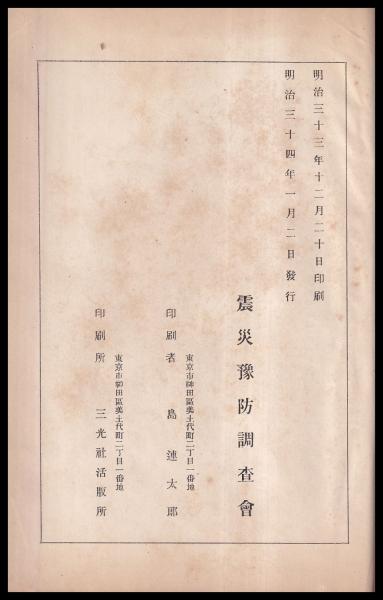 明治三十三年十二月二十日印刷
明治三十四年一月二日發行
震災豫防調査會
東京市神田區美土代町二丁目一番地
印刷者　島連太郎
東京市神田區美土代町二丁目一番地
印刷所　三光社活版所